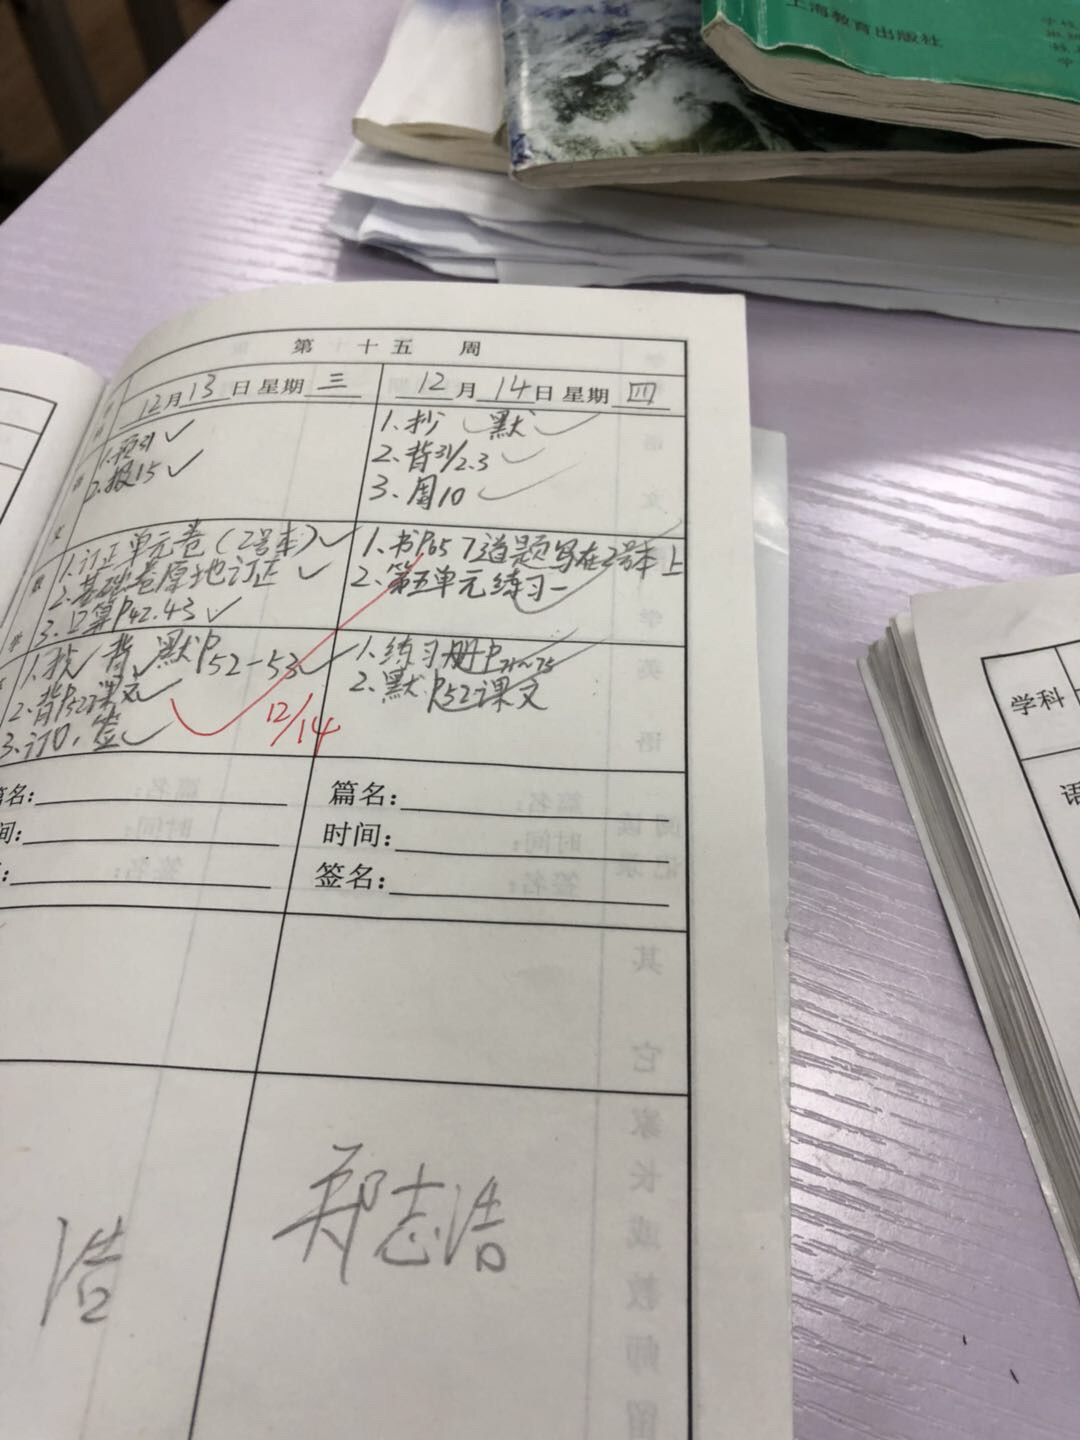 上海教育出版社
第十五周
12月13日星期三
12月14日星期四
1.预31
2.报15
1.抄 默
2.背31/2.3
3.周10
1.订正单元卷(2号本)
2.基础卷原地订正
3.口算P42.43
1.书P65 7道题写在2号本上
2.第五单元练习一
1.抄 背 默P52-53
2.背P52课文
3.订口,签
1.练习册P71~75
2.默P52课文
12/14
篇名:
时间:
篇名:
时间:
签名:
浩
郑志浩
学科
语